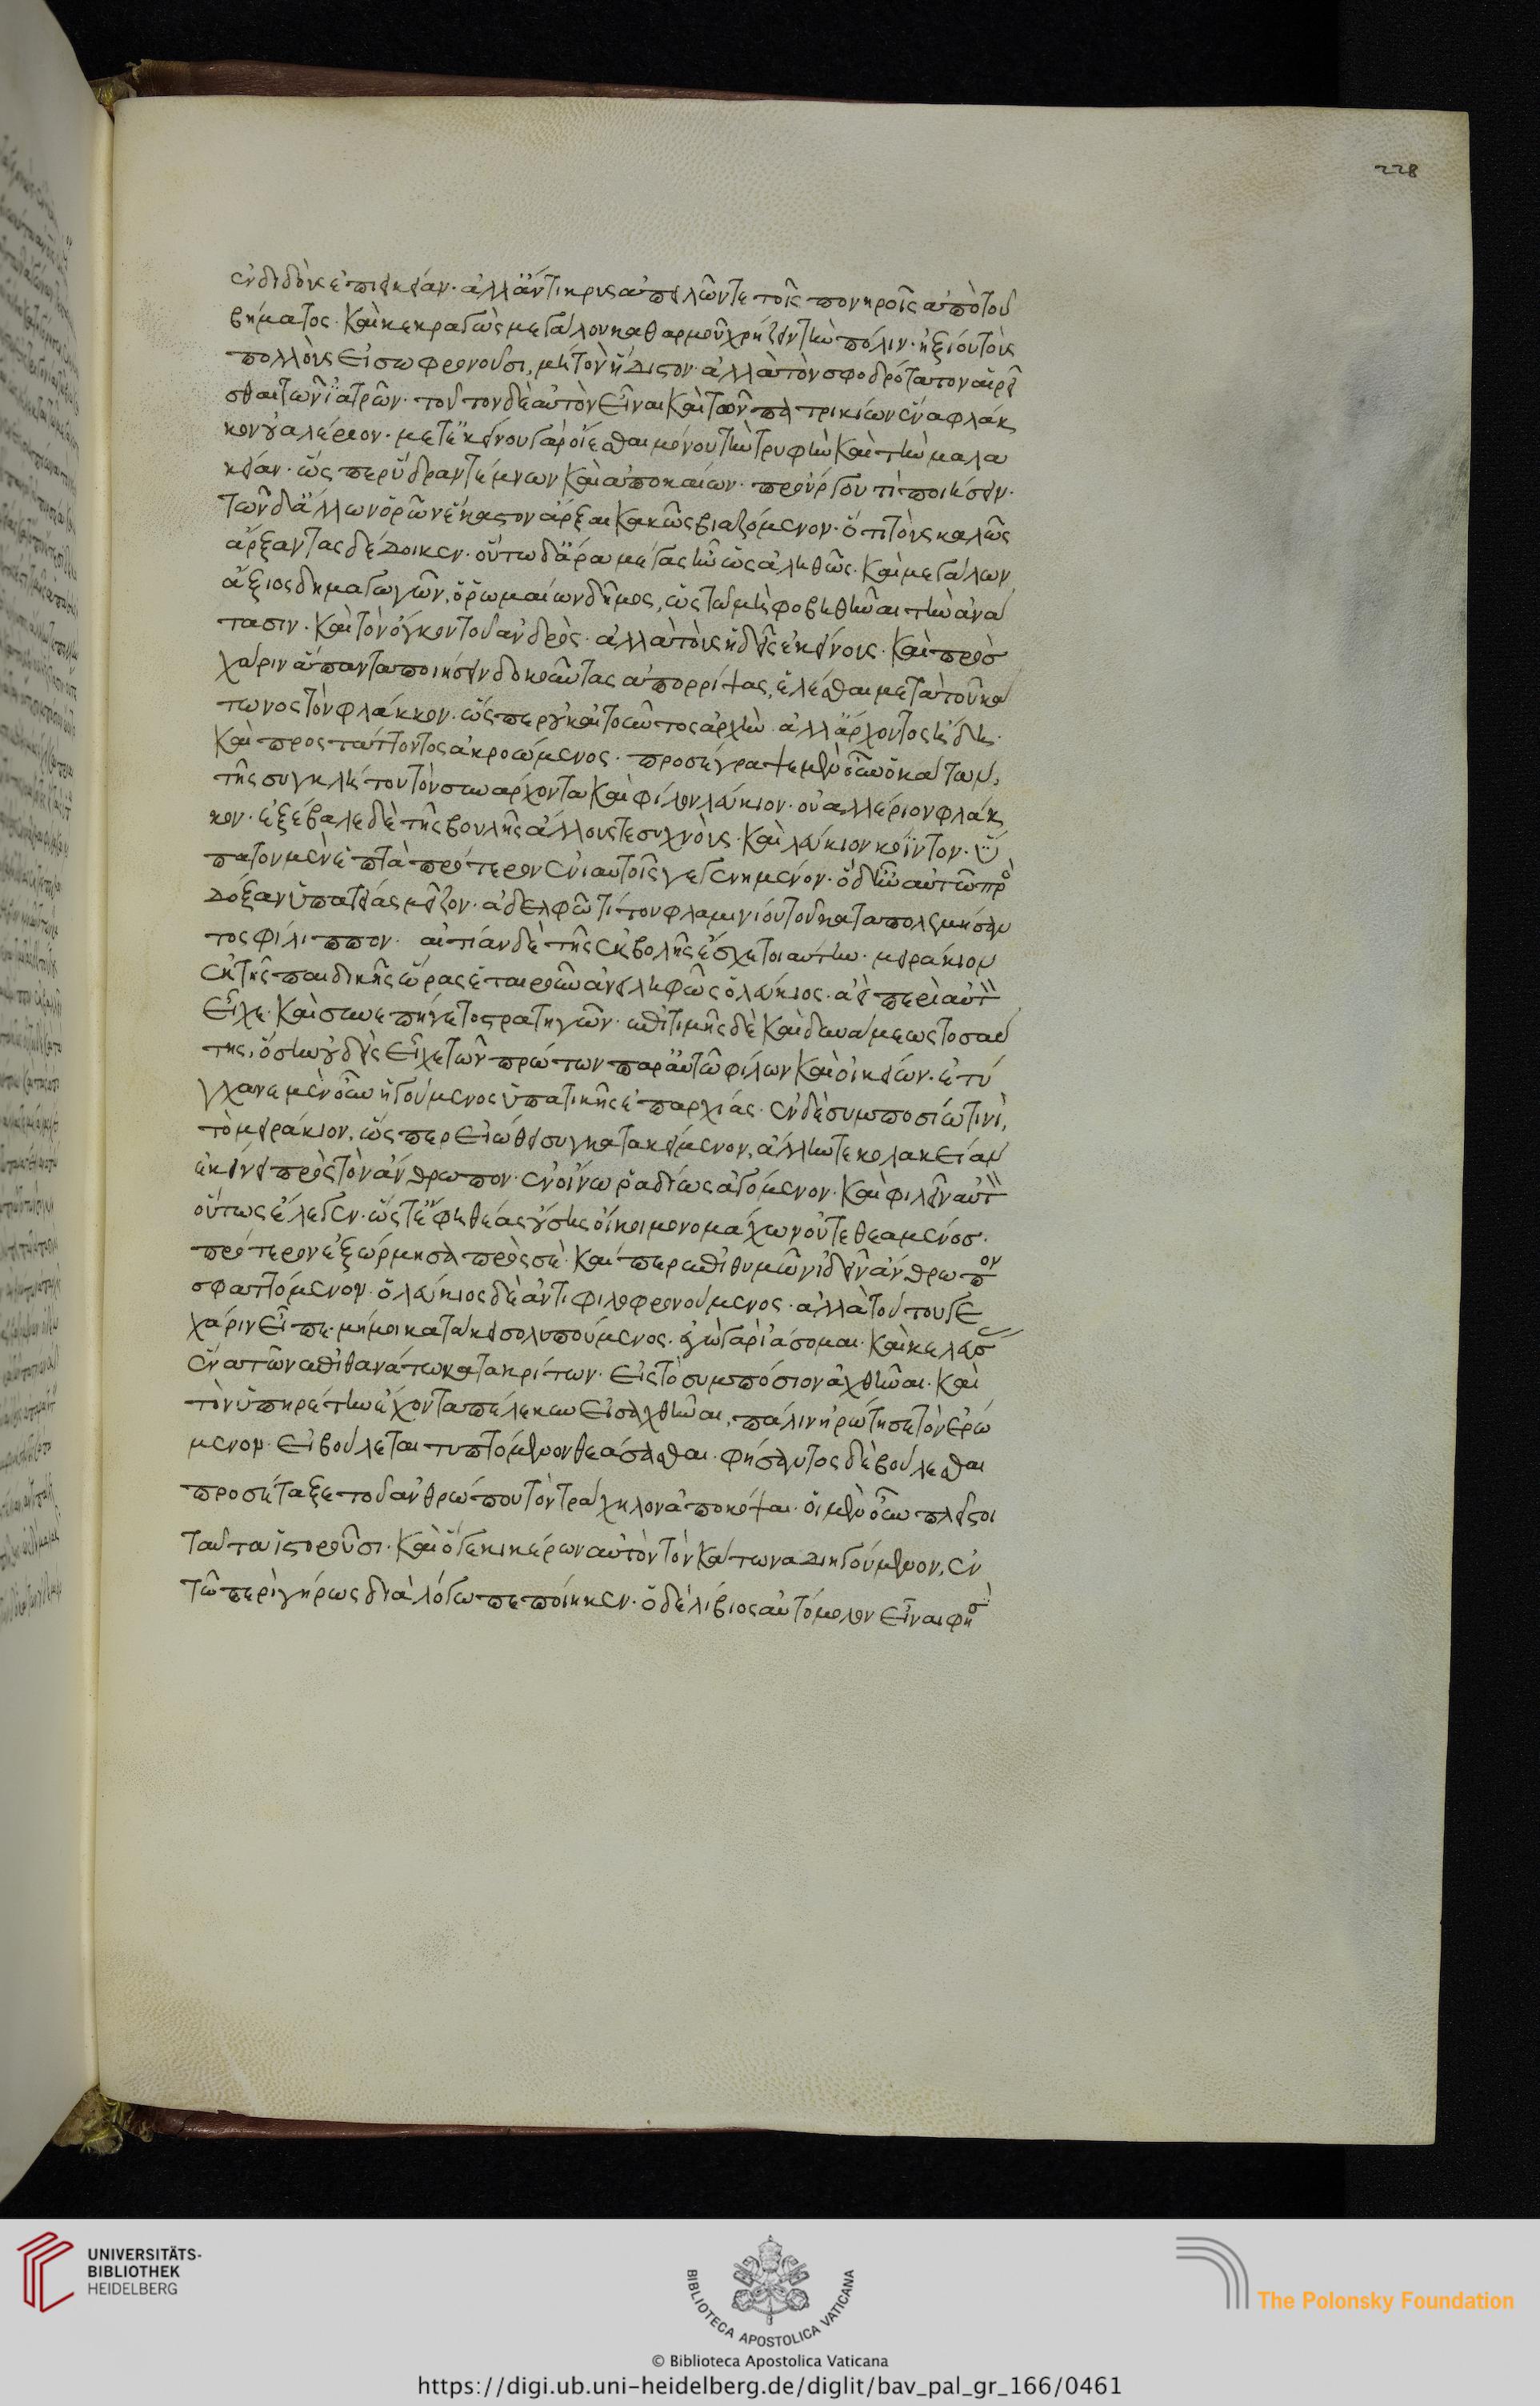 ἐνδιδοὺς ἐπιείκειαν. ἀλλ' ἄντικρυς ἀπειλῶν τε τοῖς πονηροῖς ἀπὸ τοῦ
βήματος. καὶ κεκραγὼς μεγάλου καθαρμοῦ χρήζειν τὴν πόλιν. ἠξίου τοὺς
πολλοὺς εἰ σωφρονοῦσι, μὴ τὸν ἥδιστον. ἀλλὰ τὸν σφοδρότατον αἱρεῖ
σθαι τῶν ἰατρῶν. τοῦτον δὲ αὐτὸν εἶναι καὶ τῶν πατρικίων ἕνα φλάκ
κον γαλέριον. μετ' ἐκείνου γὰρ οἴεσθαι μόνου τὴν τρυφὴν καὶ τὴν μαλα
κείαν. ὥσπερ ὕδραν τέμνων καὶ ἀποκαίων. προὔργου τὶ ποιήσειν.
τῶν δ' ἄλλων ὁρῶν ἕκαστον ἄρξαι κακῶς βιαζόμενον. ὅτι τοὺς καλῶς
ἄρξαντας δέδοικεν. οὕτω δ' ἄρα μέγας ἦν ὡς ἀληθῶς. καὶ μεγάλων
ἄξιος δημαγωγῶν, ὁ ῥωμαίων δῆμος, ὥστε μὴ φοβηθῆναι τὴν ἀνά
τασιν. καὶ τὸν ὄγκον τοῦ ἀνδρός. ἀλλὰ τοὺς ἡδεῖς ἐκείνους. καὶ πρὸς
χάριν ἅπαντα ποιήσειν δοκοῦντας ἀπορρίψας, ἑλέσθαι μετὰ τοῦ κά
τωνος τὸν φλάκκον. ὥσπερ οὐκ αἰτοῦντος ἀρχήν. ἀλλ' ἄρχοντος ἤδη.
καὶ προστάττοντος ἀκροώμενος. προσέγραψε μὲν οὖν ὁ κάτων,
τῆς συγκλήτου τὸν συνάρχοντα καὶ φίλον λεύκιον. οὐαλλέριον φλάκ
κον. ἐξέβαλε δὲ τῆς βουλῆς ἄλλους τε συχνοὺς. καὶ λεύκιον κοΐντον. ὕ
πατον μὲν ἑπτὰ πρότερον ἐνιαυτοῖς γεγενημένον. ὃ δ' ἦν αὐτῶ πρὸ
δόξαν ὑπατείας μεῖζον. ἀδελφῶ τίτου φλαμινίου τοῦ καταπολεμήσαν
τος φίλιππον. αἰτίαν δὲ τῆς ἐκβολῆς ἔσχε τοιαύτην. μειράκιον
ἐκ τῆς παιδικῆς ὥρας ἑταιροῦν ἀνειληφὼς ὁ λεύκιος. ἀεὶ περὶ αὑτὸν
εἶχε. καὶ συνεπήγετο στρατηγῶν. ἐπὶ τιμῆς δὲ καὶ δυνάμεως τοσαύ
της, ὅσην οὐδεὶς εἶχε τῶν πρώτων παρ' αὐτῶ φίλων καὶ οἰκείων. ἐτύ
γχανε μὲν οὖν ἡγούμενος ὑπατικῆς ἐπαρχίας. ἐν δὲ συμποσίω τινὶ,
τὸ μειράκιον, ὥσπερ εἰώθει συγκατακείμενον, ἄλλην τε κολακείαν
ἐκίνει πρὸς τὸν ἄνθρωπον. ἐν οἴνω ῥαδίως ἀγόμενον. καὶ φιλεῖν αὐτὸν
οὕτως ἔλεγεν. ὥστ' ἔφη θέας οὔσης οἴκοι μονομάχων οὔ τεθεαμένος.
πρότερον ἐξώρμησα πρὸς σὲ. καίπερ ἐπιθυμῶν ἰδεῖν ἄνθρωπον
σφαττόμενον. ὁ λεύκιος δὲ ἀντιφιλοφρονούμενος. ἀλλὰ τούτου γε
χάριν εἶπε. μή μοι κατάκεισο λυπούμενος. ἐγὼ γὰρ ἰάσομαι. καὶ κελεύσ
ἕνα τῶν ἐπὶ θανάτω κατακρίτων. εἰς τὸ συμπόσιον ἀχθῆναι. καὶ
τὸν ὑπηρέτην ἔχοντα πέλεκυν εἰσαχθῆναι, πάλιν ἠρώτησε τὸν ἐρώ
μενον. εἰ βούλεται τυπτόμενον θεάσασθαι. φήσαντος δὲ βούλεσθαι
προσέταξε τοῦ ἀνθρώπου τὸν τράχηλον ἀποκόψαι. οἱ μὲν οὖν πλεῖστοι
ταῦτα ἱστοροῦσι. καὶ ὅ γε κικέρων αὐτὸν τὸν κάτωνα διηγούμενον, ἐν
τῶ περὶ γήρως διαλόγω πεποίηκεν. ὁ δὲ λίβιος αὐτόμολον εἶναι φησὶ
228
UNIVERSITÄTS-
BIBLIOTHEK
HEIDELBERG
BIBLIOTECA APOSTOLICA VATICANA
The Polonsky Foundation
© Biblioteca Apostolica Vaticana
https://digi.ub.uni-heidelberg.de/diglit/bav_pal_gr_166/0461